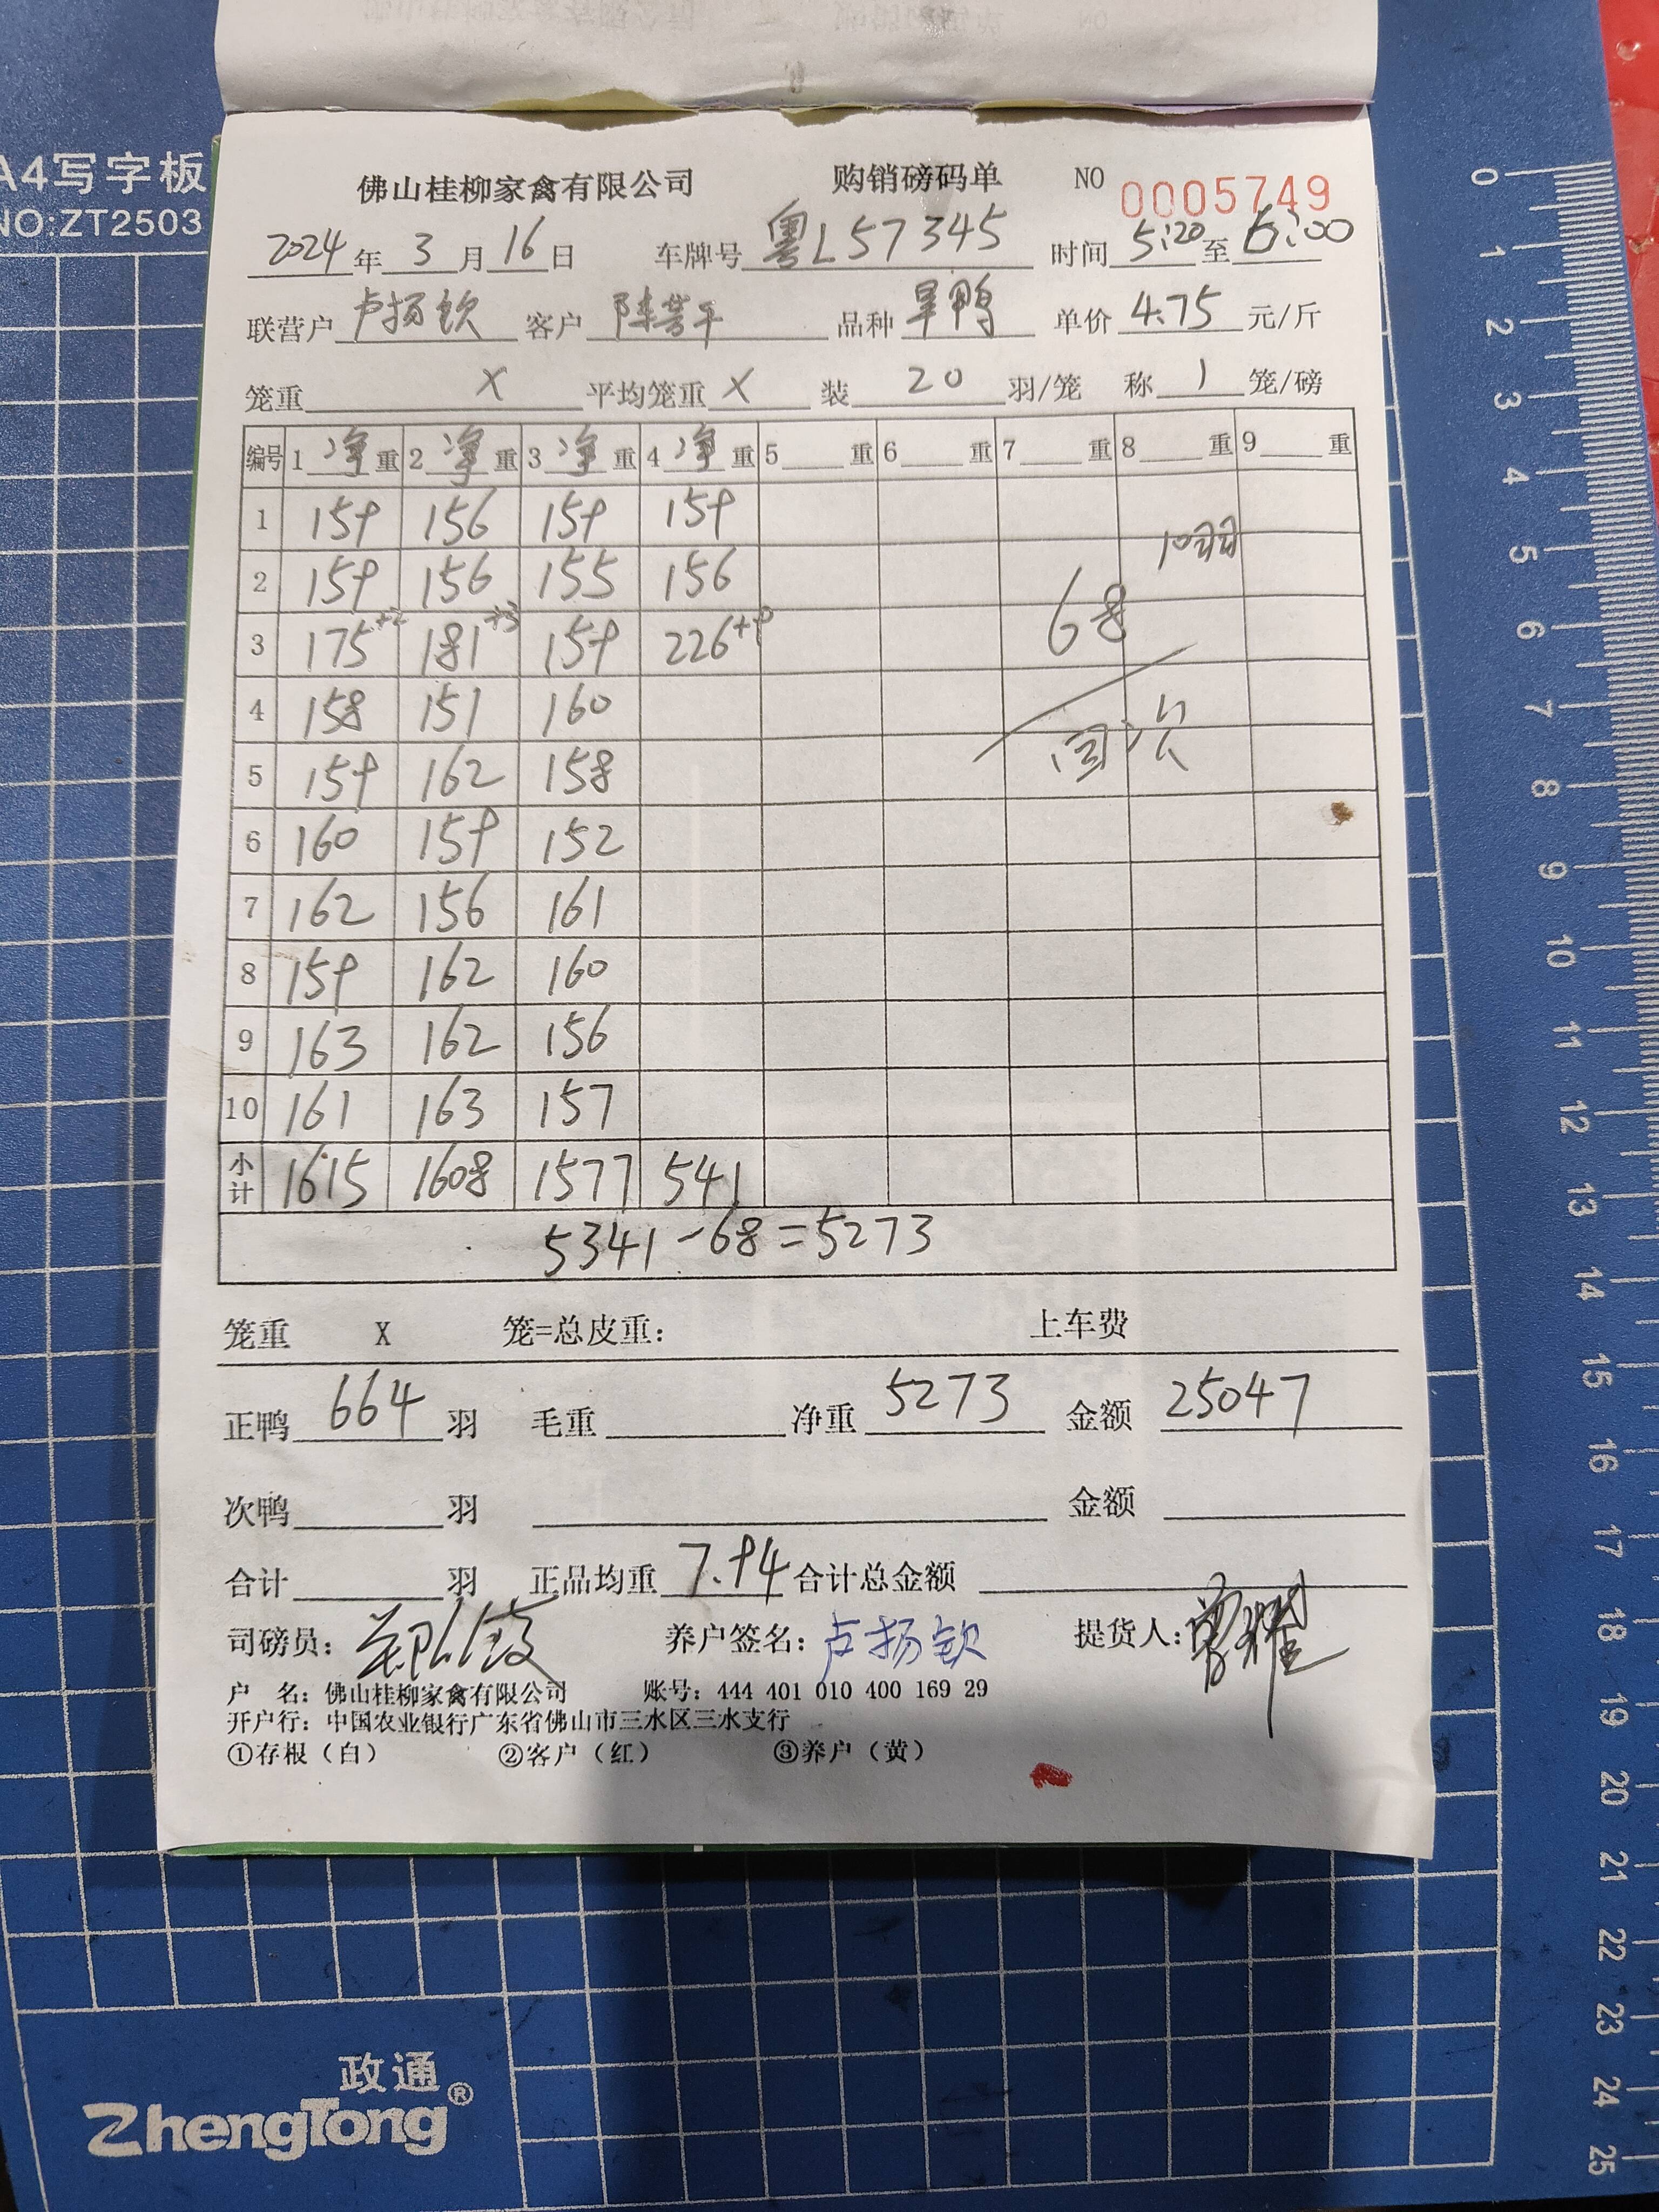 A4写字板
NO:ZT2503
佛山桂柳家禽有限公司 购销磅码单 NO 0005749
2024年 3月16日 车牌号 粤L57345 时间 5:20 至 6:00
联营户 卢扬钦 客户 陈 平 品种 旱鸭 单价 4.75 元/斤
笼重 X 平均笼重 X 装 20 羽/笼 称 1 笼/磅
编号 1 净 重 2 净 重 3 净 重 4 净 重 5 重 6 重 7 重 8 重 9 重
1 159 156 159 159
10羽
2 159 156 155 156
68
3 175+2 181+3 159 226+9
4 158 151 160
回次
5 159 162 158
6 160 159 152
7 162 156 161
8 159 162 160
9 163 162 156
10 161 163 157
小计 1615 1608 1577 541
5341-68=5273
笼重 X 笼=总皮重： 上车费
正鸭 664 羽 毛重 净重 5273 金额 25047
次鸭 羽 金额
合计 羽 正品均重 7.94 合计总金额
司磅员： 养户签名：卢扬钦 提货人：
户 名：佛山桂柳家禽有限公司 账号：444 401 010 400 169 29
开户行：中国农业银行广东省佛山市三水区三水支行
①存根（白） ②客户（红） ③养户（黄）
政通®
ZhengTong
0
1
2
3
4
5
6
7
8
9
10
11
12
13
14
15
16
17
18
19
20
21
22
23
24
25